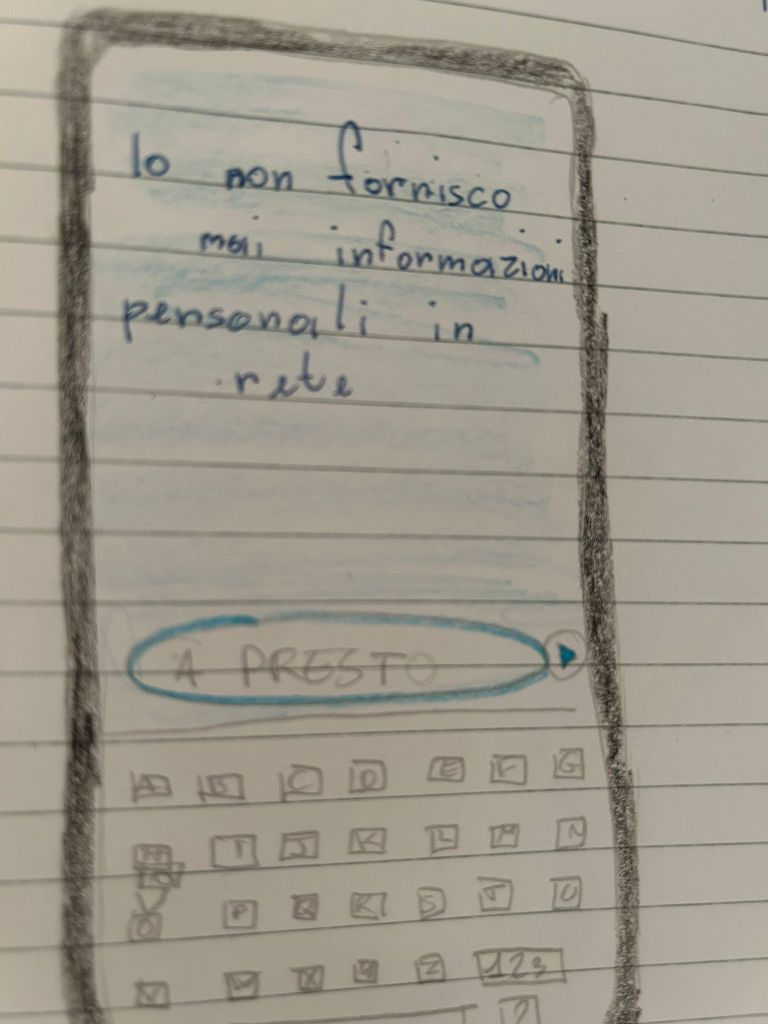 Io non fornisco
mai informazioni
personali in
rete
A PRESTO
A B C D E F G
H I J K L M N
O P Q R S T U
V W X Y Z 123
?